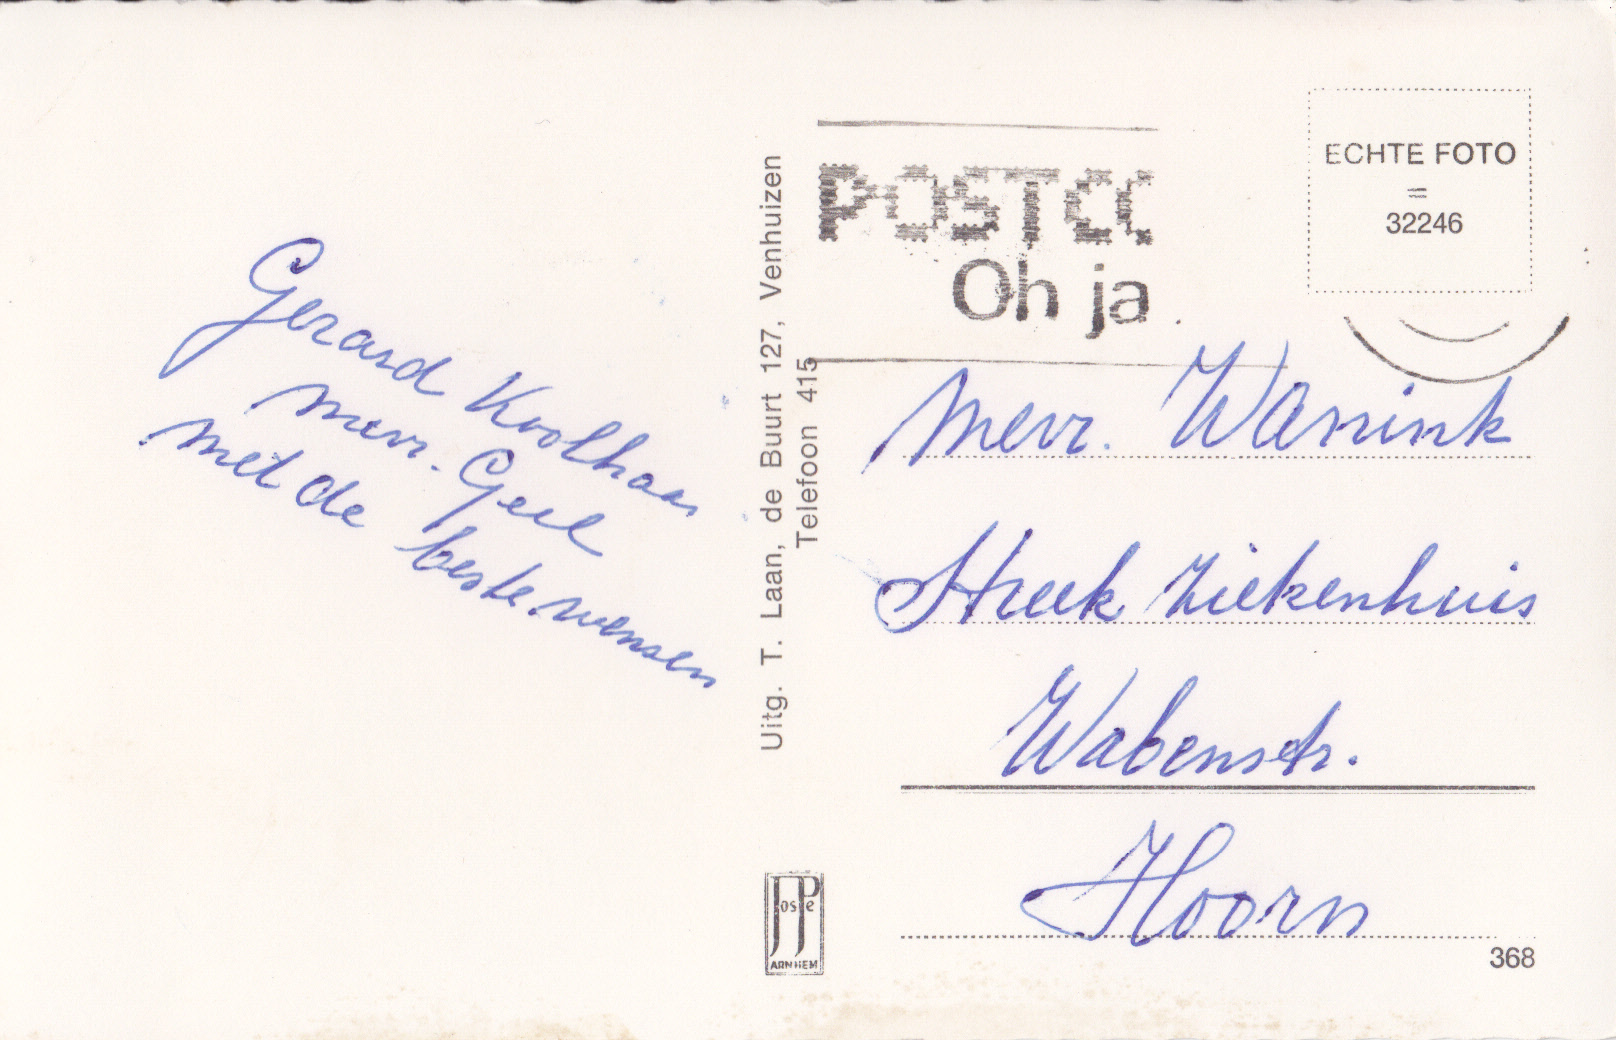 Gerard Koolhaas
mevr. Geel
met de beste wensen
Uitg. T. Laan, de Buurt 127, Venhuizen
Telefoon 415
POSTCO
Oh ja
ECHTE FOTO
=
32246
Mevr. Wassink
Streek Ziekenhuis
Wabenstr.
Hoorn
JosPé
ARNHEM
368